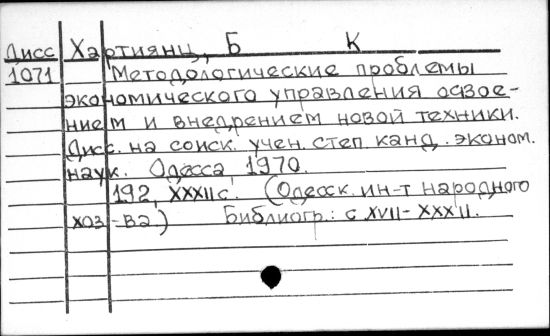 Дисс Хартиянц, Б К
1071 Методологические проблемы
экономического управления освое-
нием и внедрением новой техники.
Дисс. на соиск. учен. степ. канд. эконом.
наук. Одесса, 1970.
192, XXXII с. (Одесск. ин-т народного
хоз-ва) Библиогр.: с XVII-XXXII.